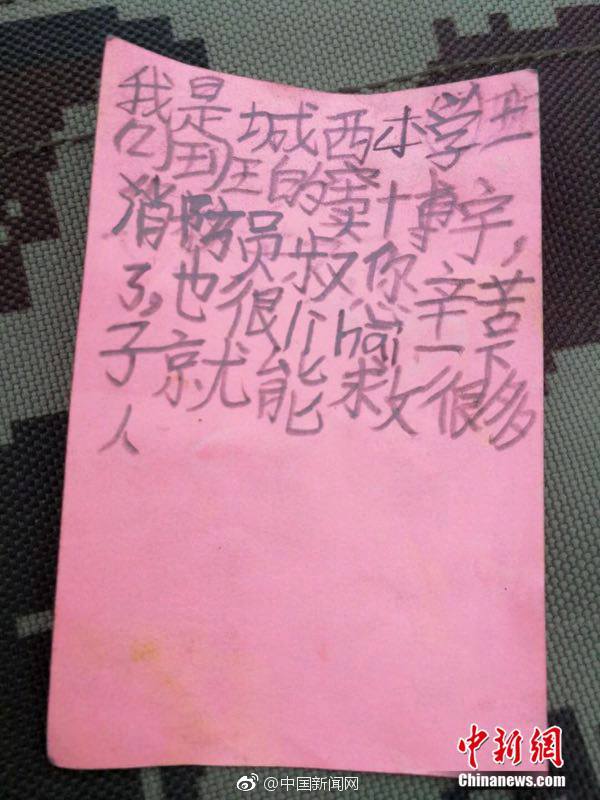 我是城西小学一
(4)班的窦博宇,
消防员叔你辛苦
了,也很厉hai一下
子就能救很多
人
@中国新闻网
中新網
Chinanews.com